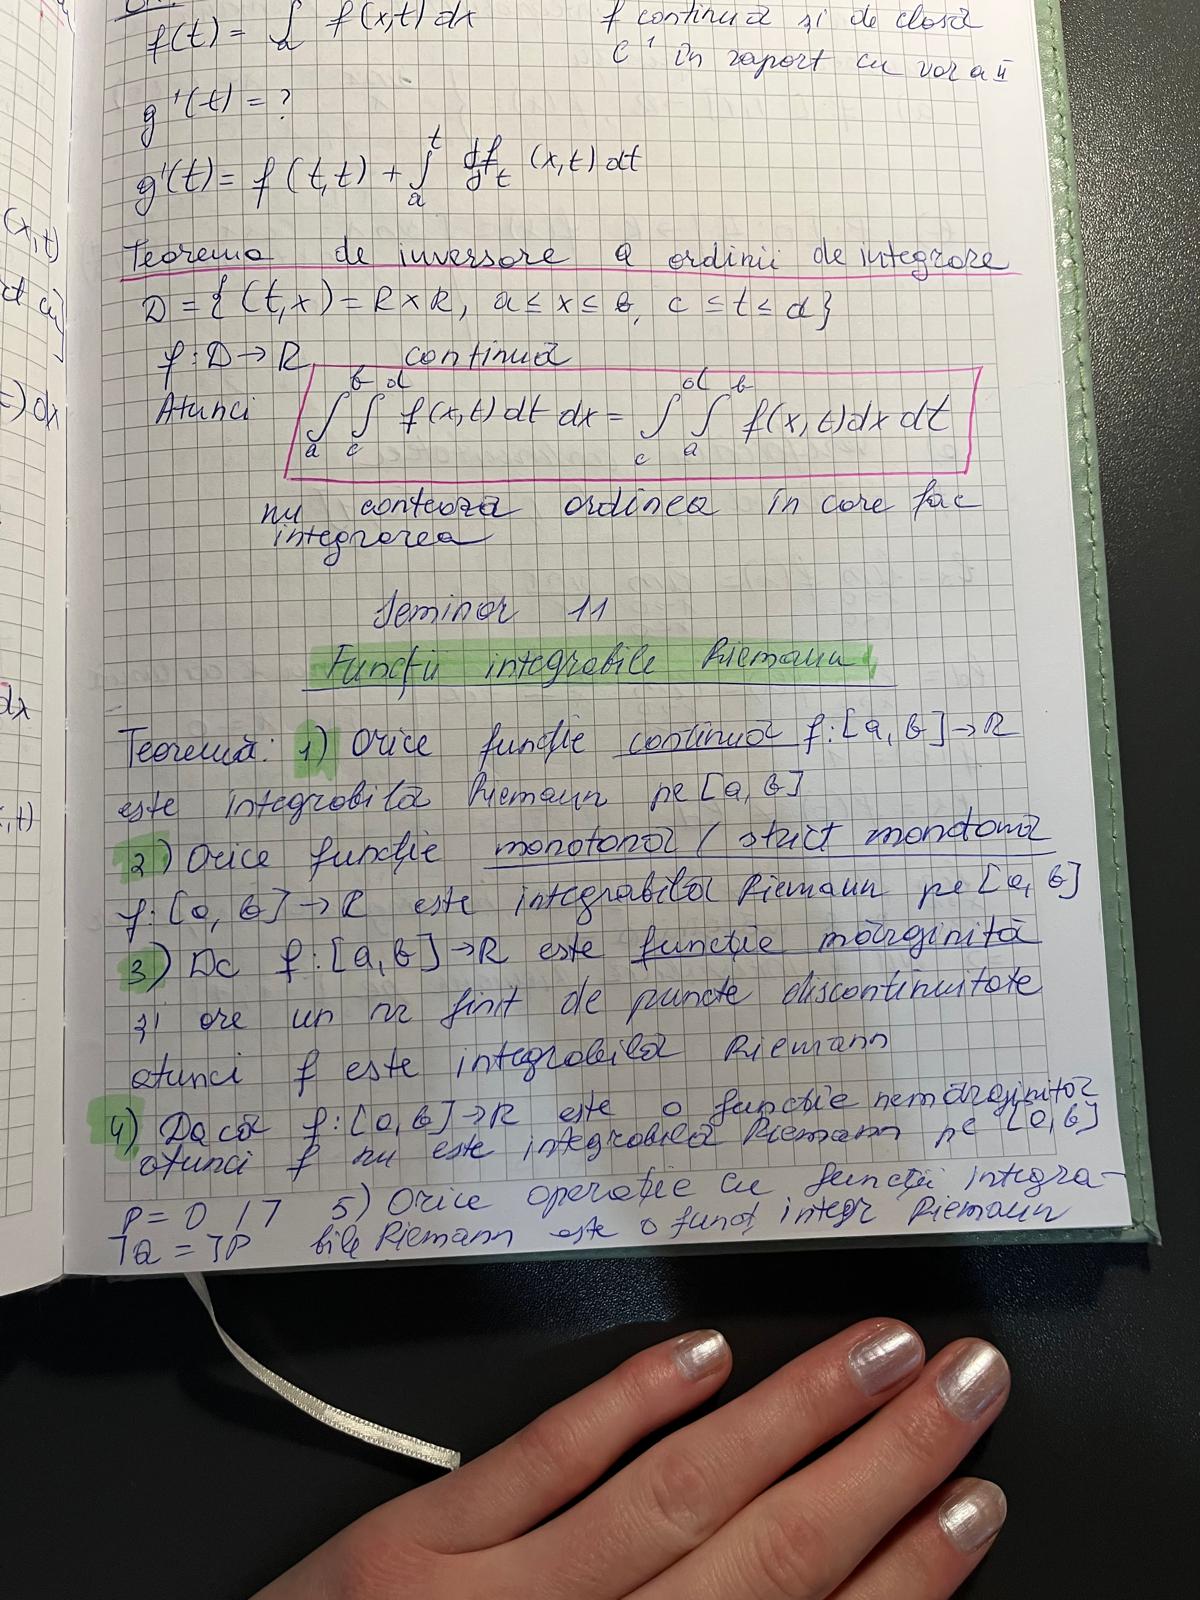 f(t) = ∫ f(x,t) dx f continuă și de clasă
a
C¹ în raport cu var a II
g'(t) = ?
g'(t) = f(t,t) + ∫ₐᵗ df/dt (x,t) dt
Teorema de inversare a ordinii de integrare
D = { (t,x) = R×R, a ≤ x ≤ b, c ≤ t ≤ d}
f: D → R continuă
Atunci ∫ₐᵇ ∫꜀ᵈ f(x,t) dt dx = ∫꜀ᵈ ∫ₐᵇ f(x,t) dx dt
nu contează ordinea în care fac
integrarea
Seminar 11
Funcții integrabile Riemann
Teoremă: 1) Orice funcție continuă f: [a,b] → R
este integrabilă Riemann pe [a,b]
2) Orice funcție monotonă / strict monotonă
f: [a,b] → R este integrabilă Riemann pe [a,b]
3) Dc f: [a,b] → R este funcție mărginită
și are un nr finit de puncte discontinuitate
atunci f este integrabilă Riemann
4) Dacă f: [a,b] → R este o funcție nemărginită
atunci f nu este integrabilă Riemann pe [a,b]
5) Orice operație cu funcții integra-
bile Riemann este o funct integr Riemann
(x,t)
ct cu
t) dx
dx
,t)